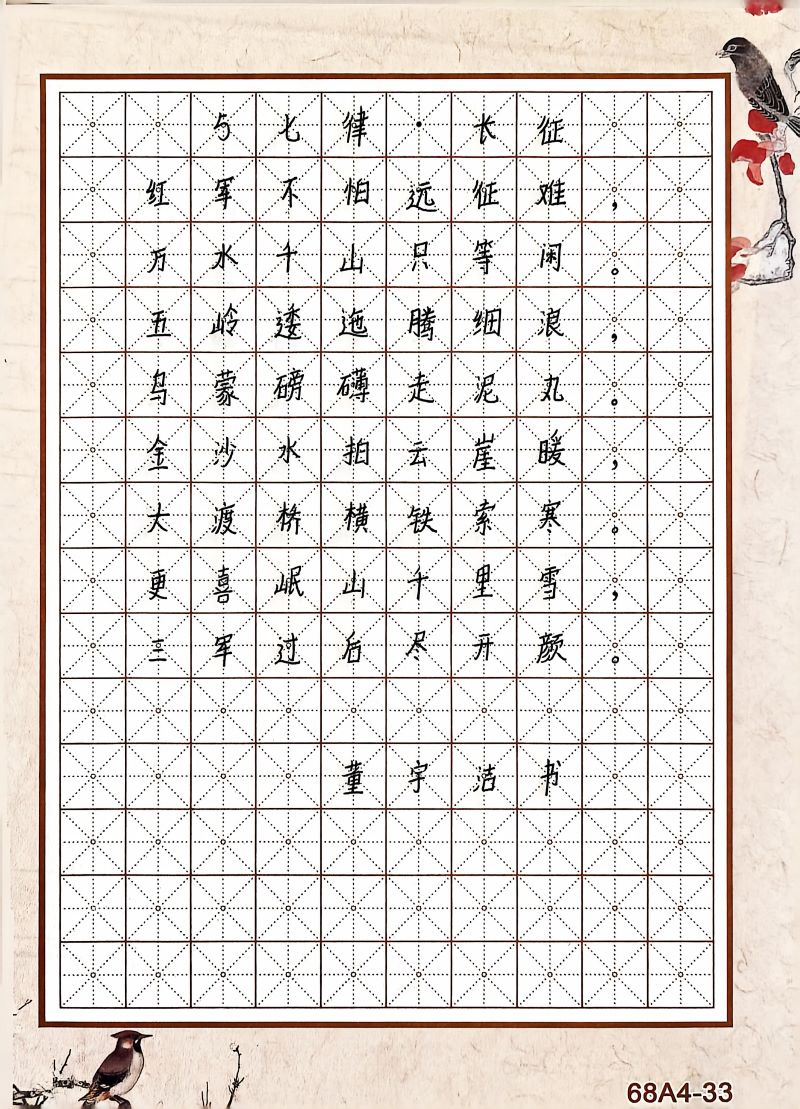 与七律·长征
红军不怕远征难，
万水千山只等闲。
五岭逶迤腾细浪，
乌蒙磅礴走泥丸。
金沙水拍云崖暖，
大渡桥横铁索寒。
更喜岷山千里雪，
三军过后尽开颜。
董宇洁书
68A4-33